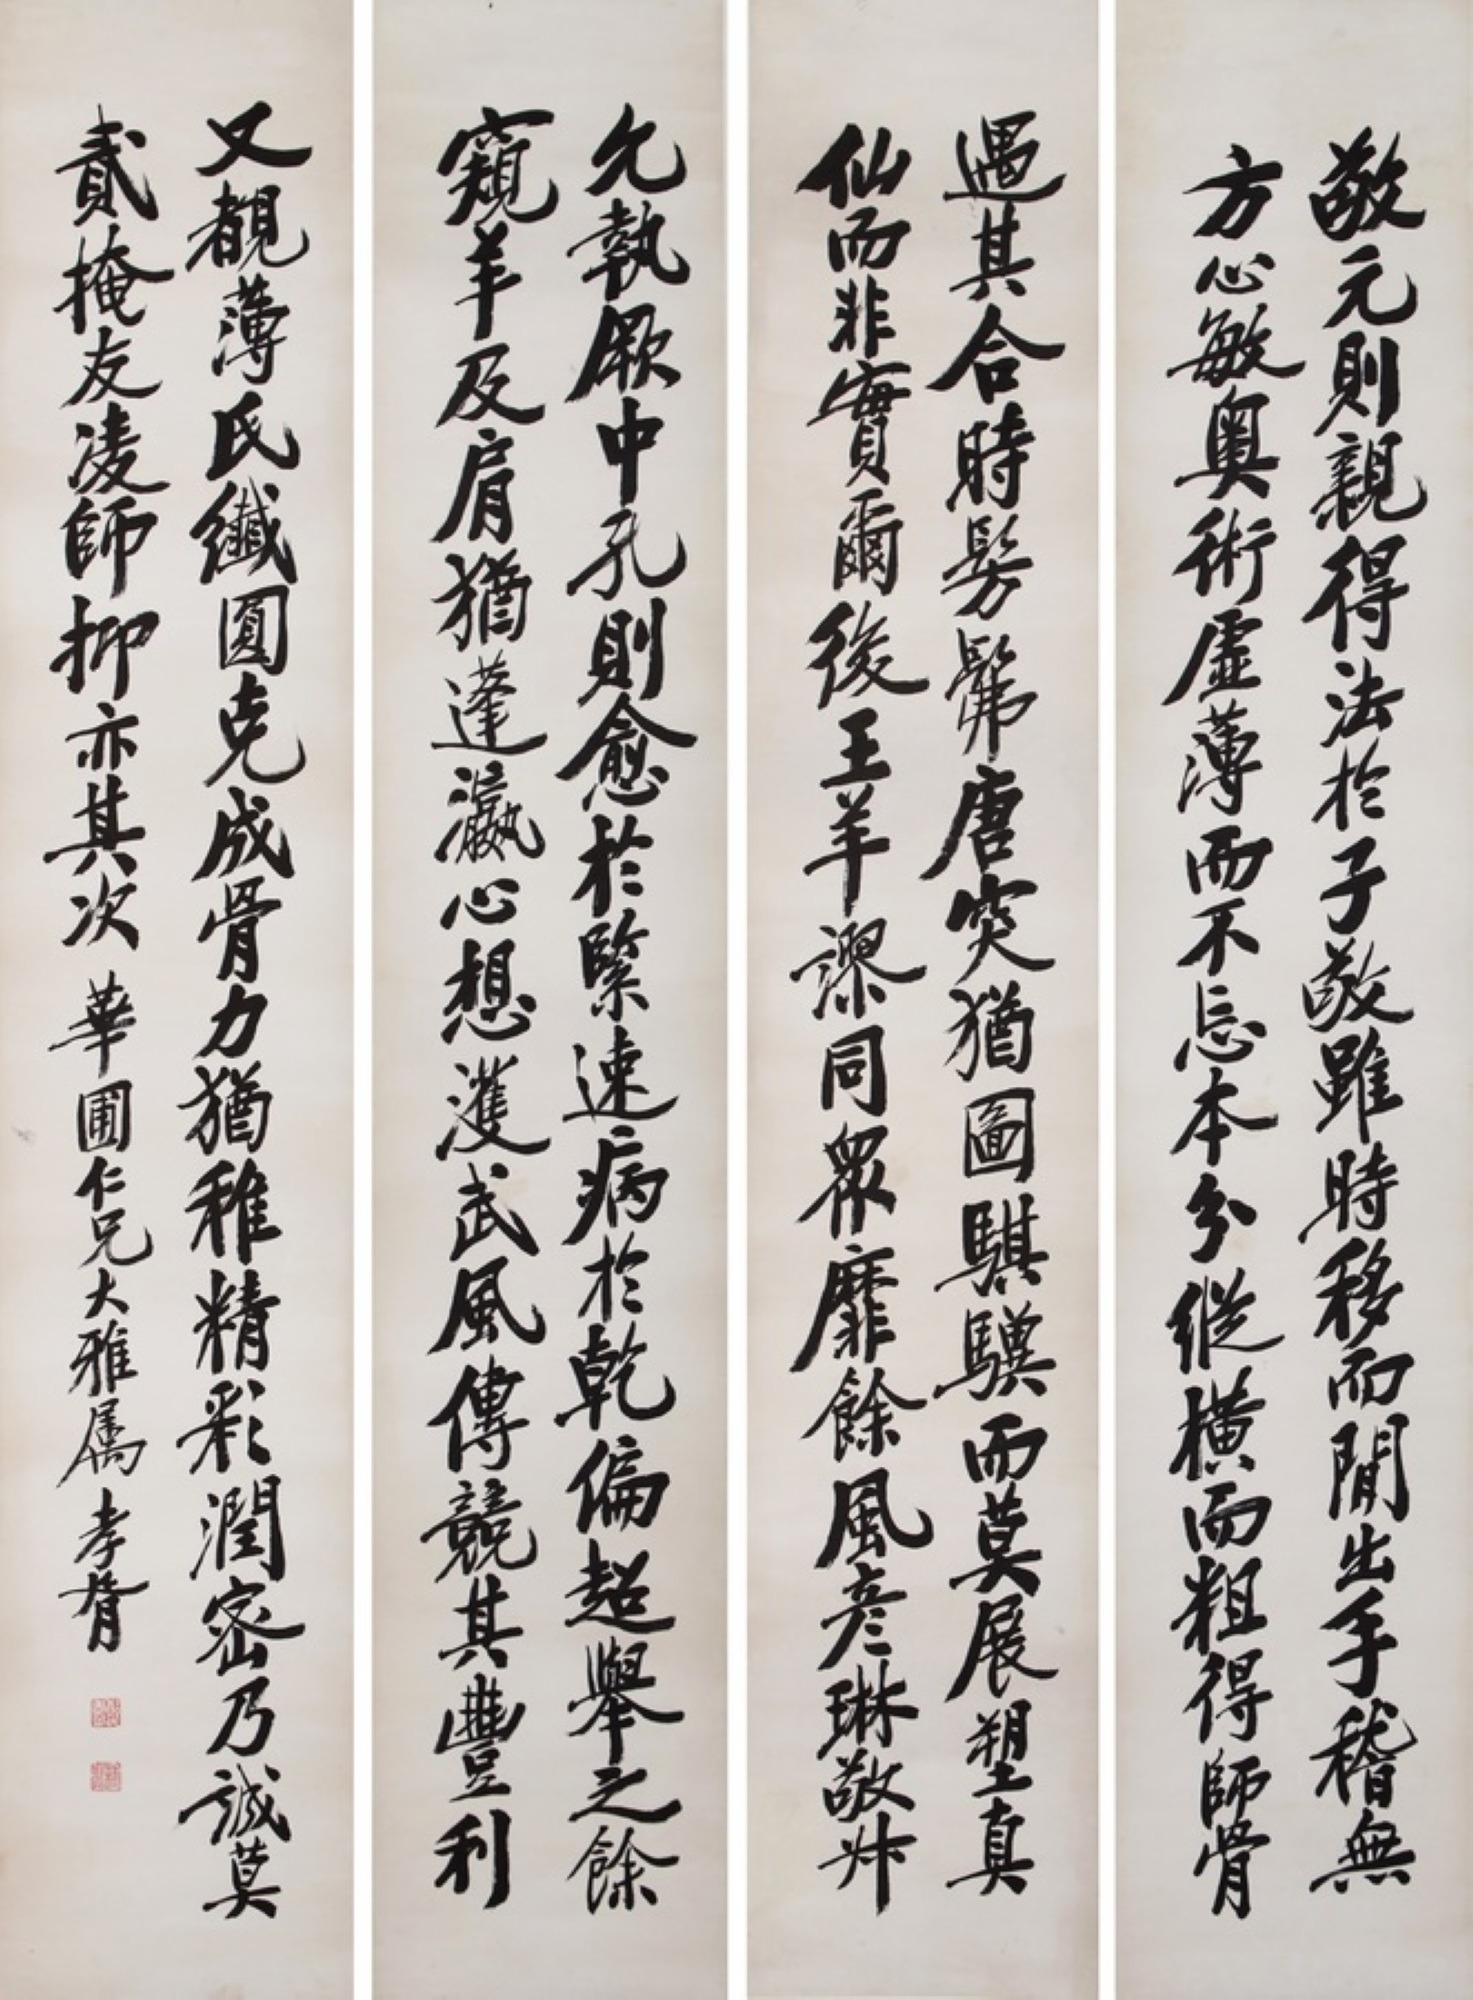 敬元則親得法於子敬雖時移而間出手稽無
方心敏奧術虛薄而不忘本分縱橫而粗得師骨
遇其合時髣髴唐突猶圖騏驥而莫展塑真
仙而非實爾後王羊謬同眾靡餘風彥琳敬叔
允執厥中孔則愈於緊速病於乾偏超舉之餘
窺羊及肩猶蓬瀛心想濩武風傳競其豐利
又覩薄氏纖圓克成骨力猶稚精彩潤密乃誠莫
貳掩友凌師抑亦其次 華圃仁兄大雅屬 孝胥